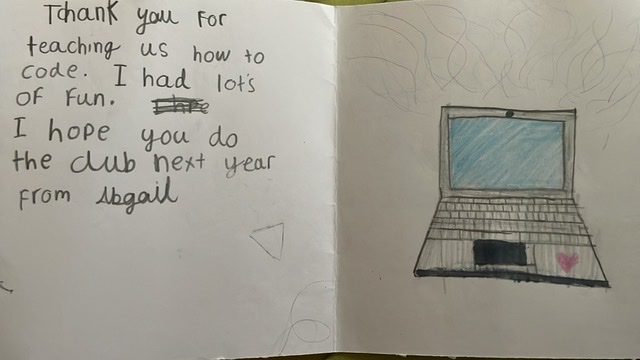 Tchank you for
teaching us how to
code. I had lot's
of fun.
I hope you do
the club next year
from Abgail